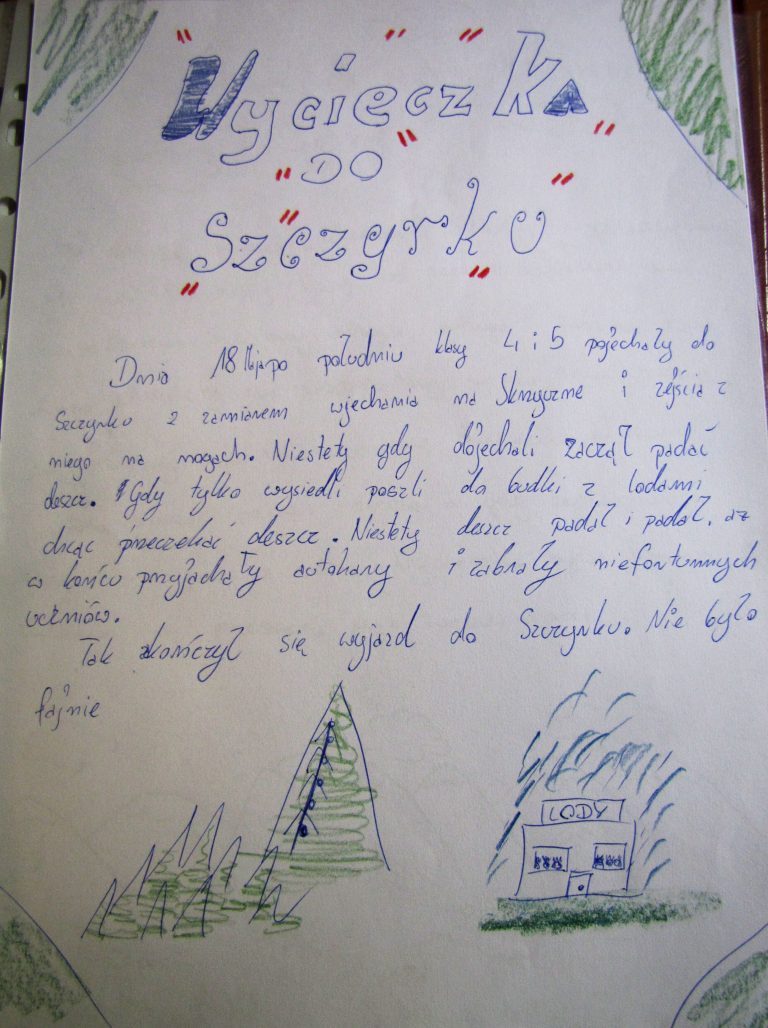 "Wycieczka"
"DO"
"Szczyrku"
Dnia 18 Maja po południu klasy 4 i 5 pojechały do
Szczyrku z zamiarem wjechania na Skrzyczne i zejścia z
niego na nogach. Niestety gdy dojechali zaczął padać
deszcz. Gdy tylko wysiedli poszli do budki z lodami
chcąc przeczekać deszcz. Niestety deszcz padał i padał, aż
w końcu przyjachały autokary i zabrały niefortunnych
uczniów.
Tak zkończył się wyjazd do Szczyrku. Nie było
fajnie
LODY